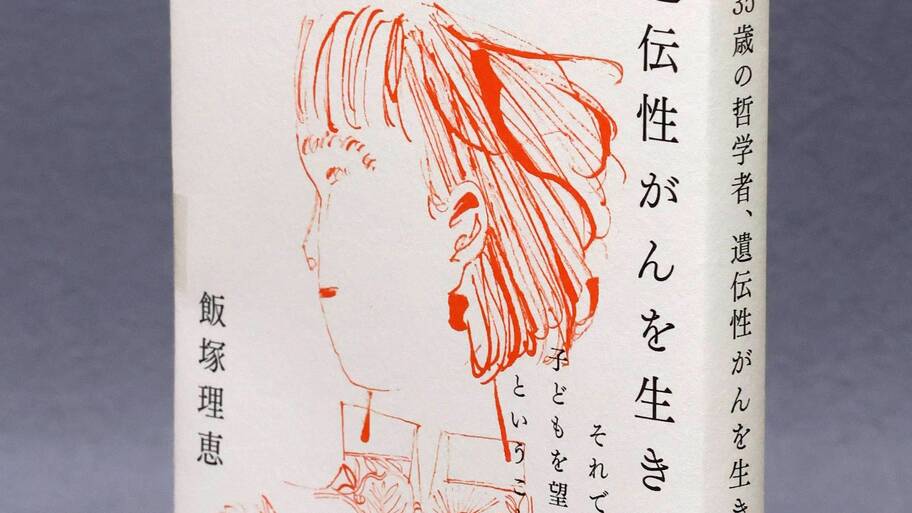 伝性がんを生き
それで
子どもを望
というこ
飯塚理恵
35歳の哲学者、遺伝性がんを生き